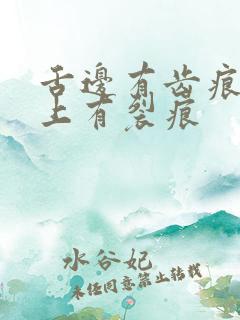 舌邊有齿痕
上有裂痕
水谷妃
未经同意禁止转载